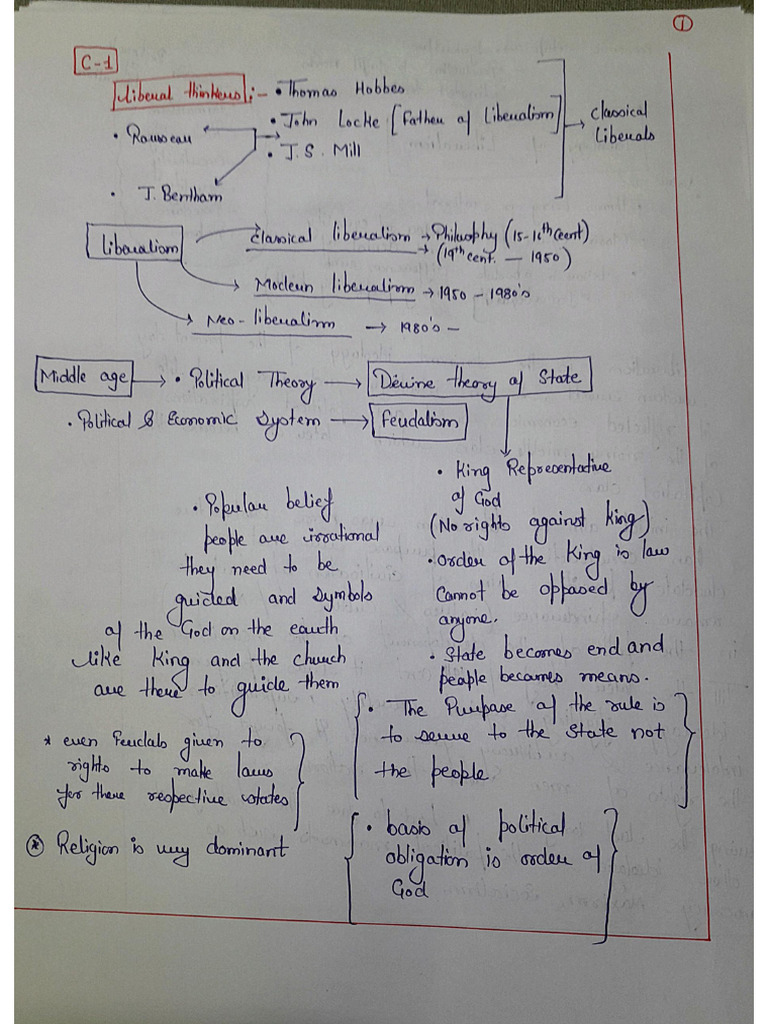 ①
C-1
Liberal thinkers :- • Thomas Hobbes
• John Locke [Father of Liberalism]
• J.S. Mill
→ Classical Liberals
• Rousseau
• J. Bentham
Liberalism
Classical liberalism → Philosophy (15-16th Cent)
→ (19th cent. — 1950)
→ Modern liberalism → 1950 - 1980's
→ Neo-liberalism → 1980's —
Middle age → • Political Theory → Devine theory of State
• Political & Economic System → Feudalism
• King Representative
of God
(No rights against King)
• order of the King is law
Cannot be opposed by
anyone.
• State becomes end and
people becomes means.
• Popular belief
people are irrational
they need to be
guided and symbols
of the God on the earth
like King and the church
are there to guide them
• The Purpose of the rule is
to serve to the State not
the people.
* even feudals given to
rights to make laws
for there respective states
⊛ Religion is very dominant
• basis of political
obligation is order of
God